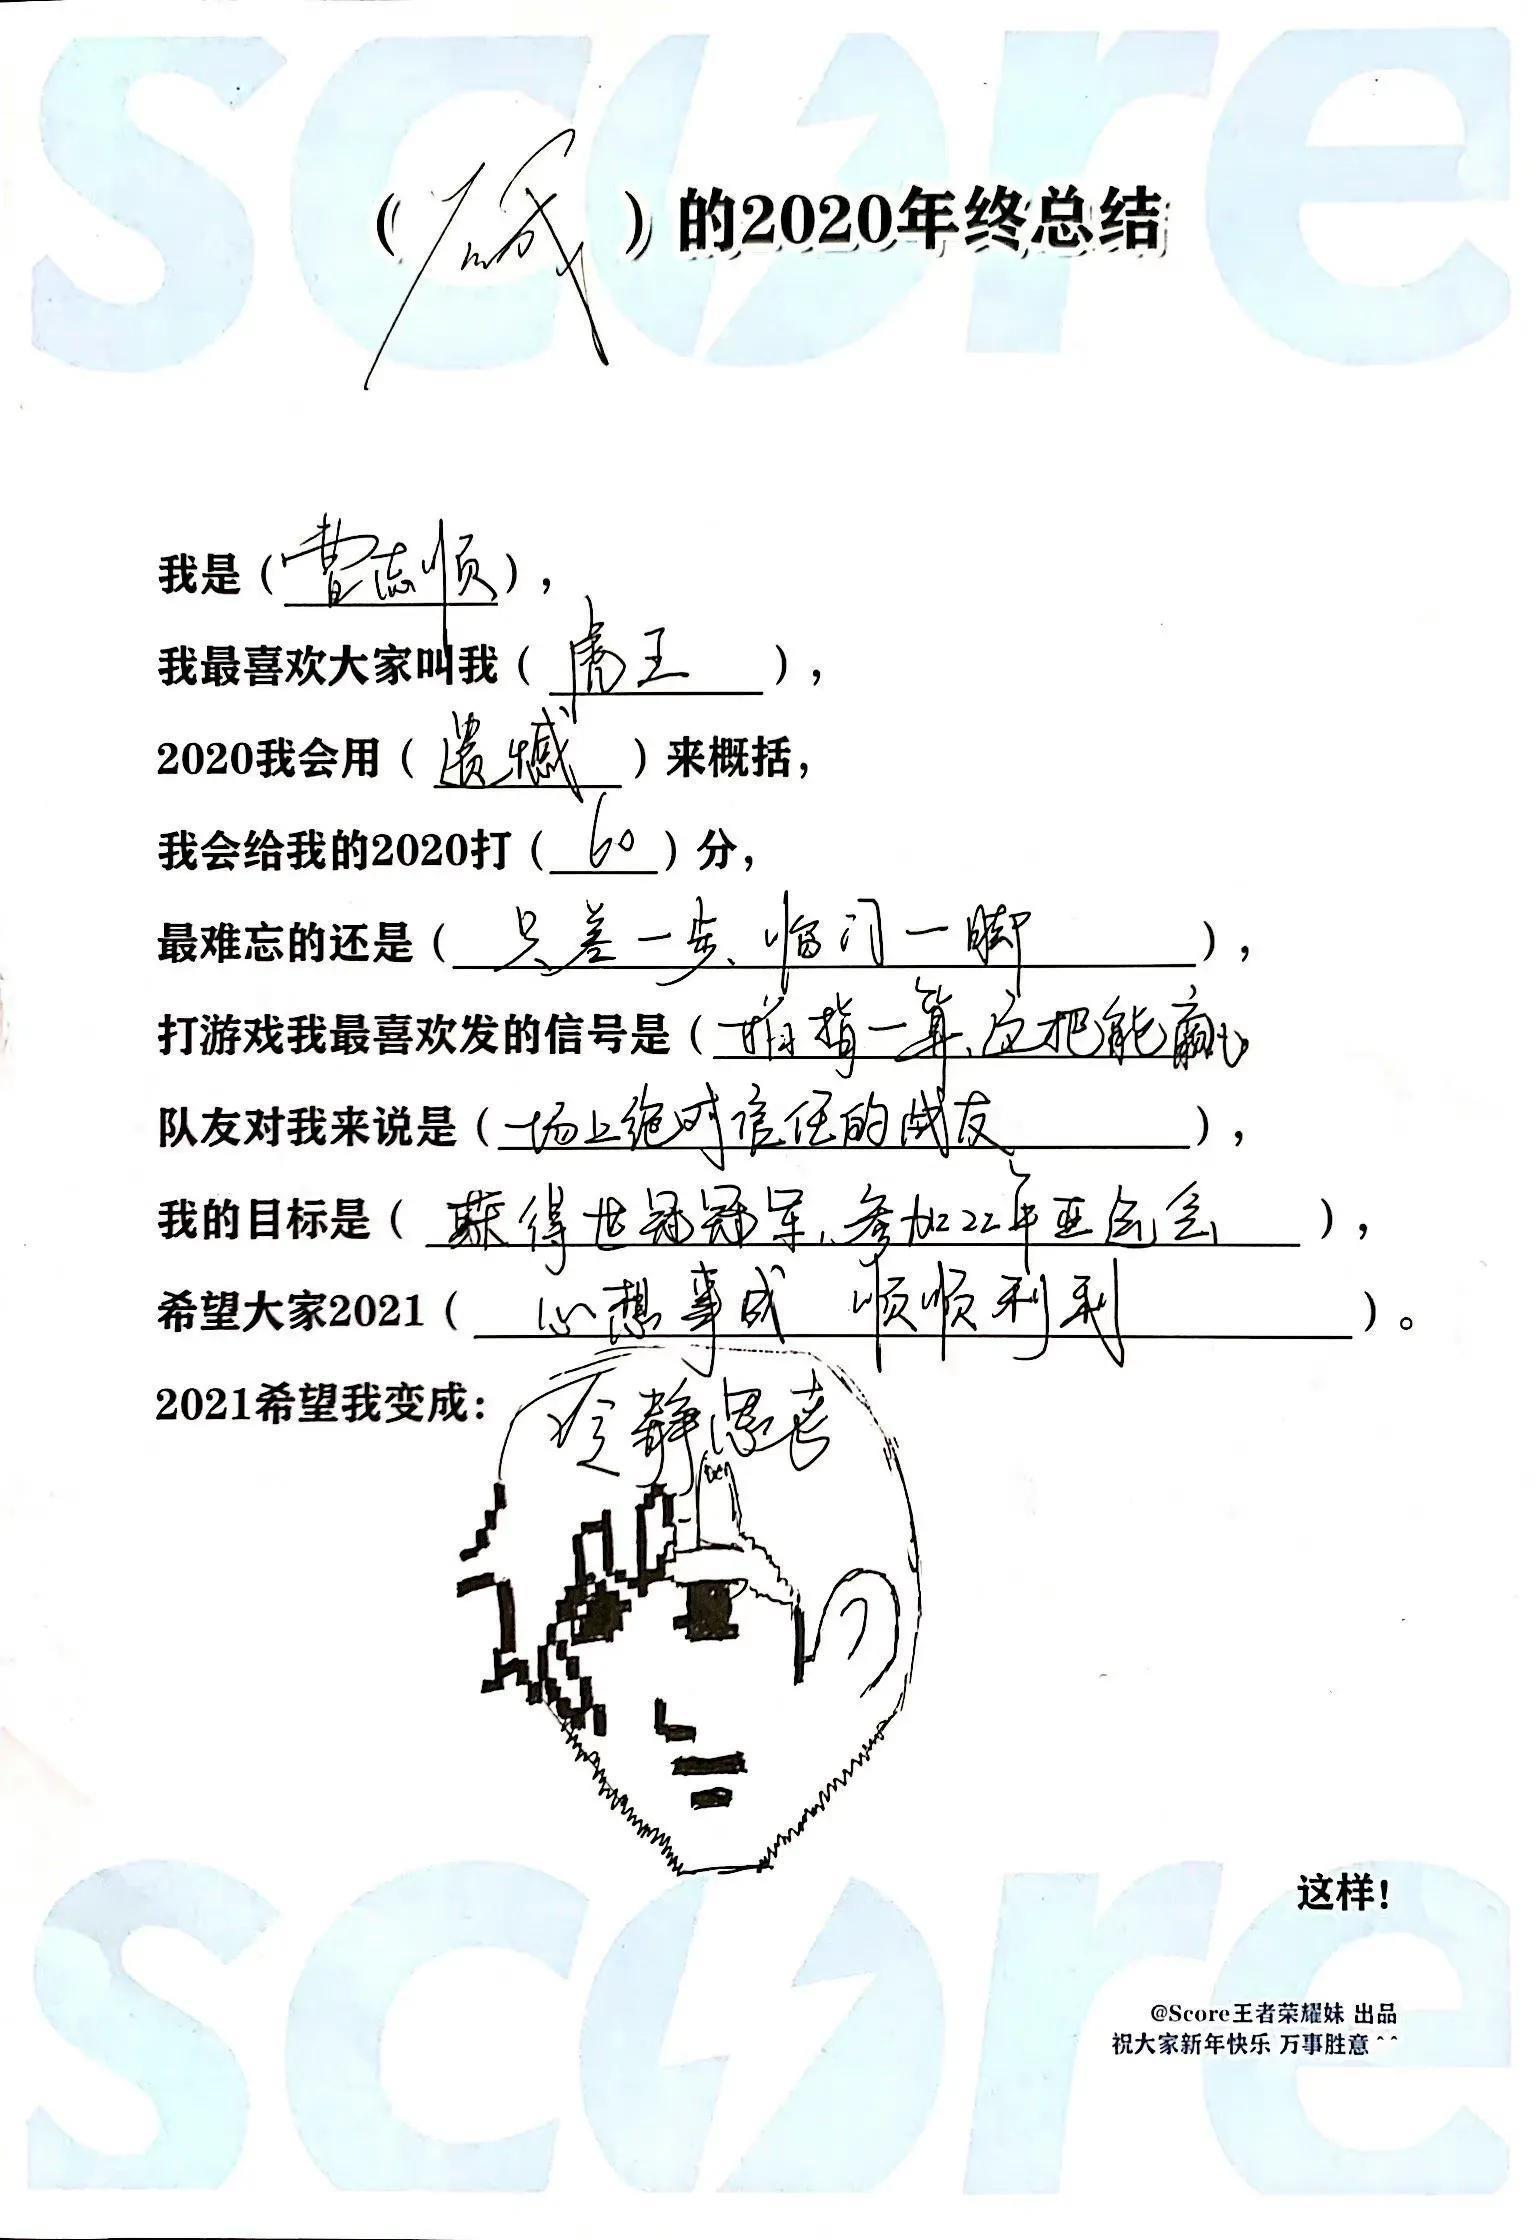 score
（ ）的2020年终总结
我是（曹志顺），
我最喜欢大家叫我（虎王），
2020我会用（遗憾）来概括，
我会给我的2020打（60）分，
最难忘的还是（只差一步、临门一脚），
打游戏我最喜欢发的信号是（拇指一算、这把能赢
队友对我来说是（场上绝对信任的战友），
我的目标是（获得世冠冠军、参加22年亚运会），
希望大家2021（心想事成 顺顺利利）。
2021希望我变成：
冷静思考
这样！
@Score王者荣耀妹 出品
祝大家新年快乐 万事胜意^^
score